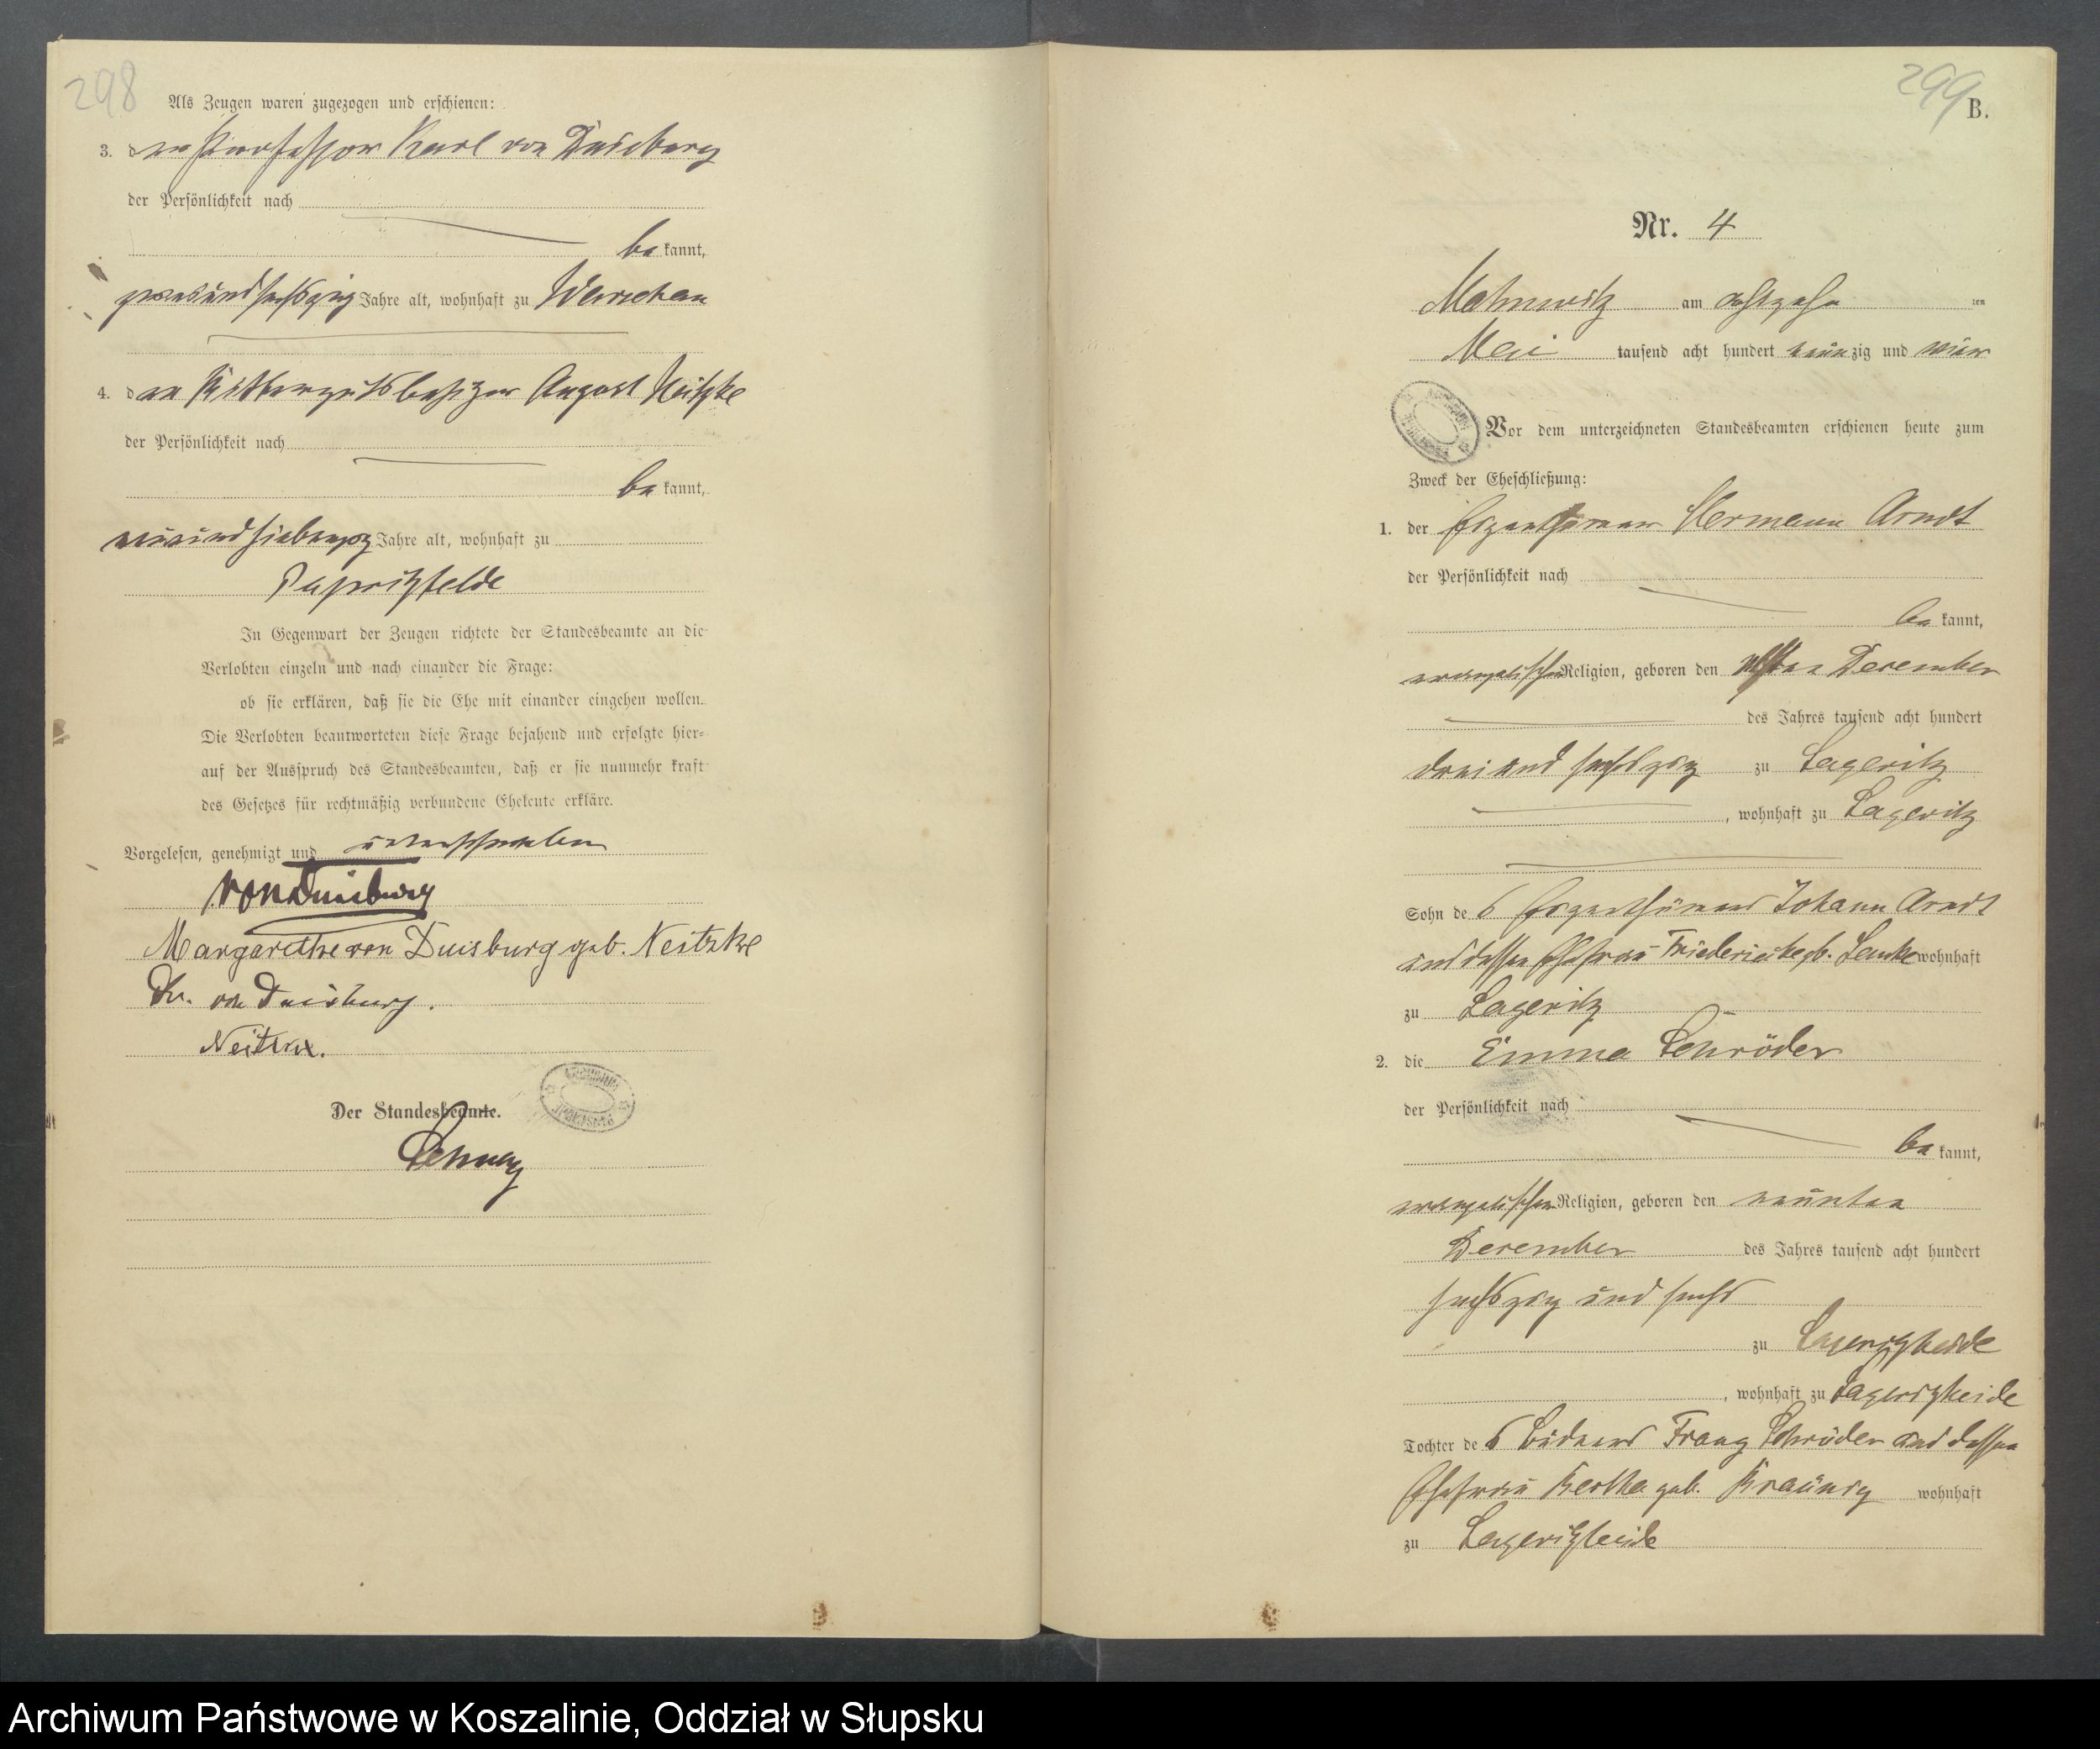 298
Als Zeugen waren zugezogen und erschienen:
3. der Professor Karl von Duisburg
der Persönlichkeit nach
be kannt,
zweiundsechszig Jahre alt, wohnhaft zu Warschau
4. der Rittergutsbesitzer August Neitzke
der Persönlichkeit nach
be kannt,
neunundsiebenzig Jahre alt, wohnhaft zu
Papritzfelde
In Gegenwart der Zeugen richtete der Standesbeamte an die
Verlobten einzeln und nach einander die Frage:
ob sie erklären, daß sie die Ehe mit einander eingehen wollen.
Die Verlobten beantworteten diese Frage bejahend und erfolgte hier-
auf der Ausspruch des Standesbeamten, daß er sie nunmehr kraft
des Gesetzes für rechtmäßig verbundene Eheleute erkläre.
Vorgelesen, genehmigt und unterschrieben
von Duisburg
Margarethe von Duisburg geb. Neitzke
von Duisburg.
Neitzke.
Der Standesbeamte.
299
B.
Nr. 4
Mahnwitz am achtzehn ten
Mai tausend acht hundert neunzig und vier
Vor dem unterzeichneten Standesbeamten erschienen heute zum
Zweck der Eheschließung:
1. der Eigenthümer Hermann Arndt
der Persönlichkeit nach
be kannt,
evangelischer Religion, geboren den elften December
des Jahres tausend acht hundert
drei und sechszig zu Lageritz
, wohnhaft zu Lageritz
Sohn des Eigenthümers Johann Arndt
und dessen Ehefrau Friederike gb. Lemke wohnhaft
zu Lageritz
2. die Emma Schröder
der Persönlichkeit nach
be kannt,
evangelischer Religion, geboren den neunten
December des Jahres tausend acht hundert
sechszig und sechs
zu Lageritzheide
, wohnhaft zu Lageritzheide
Tochter des Büdners Franz Schröder und dessen
Ehefrau Bertha geb. Kraünig wohnhaft
zu Lageritzheide
Archiwum Państwowe w Koszalinie, Oddział w Słupsku